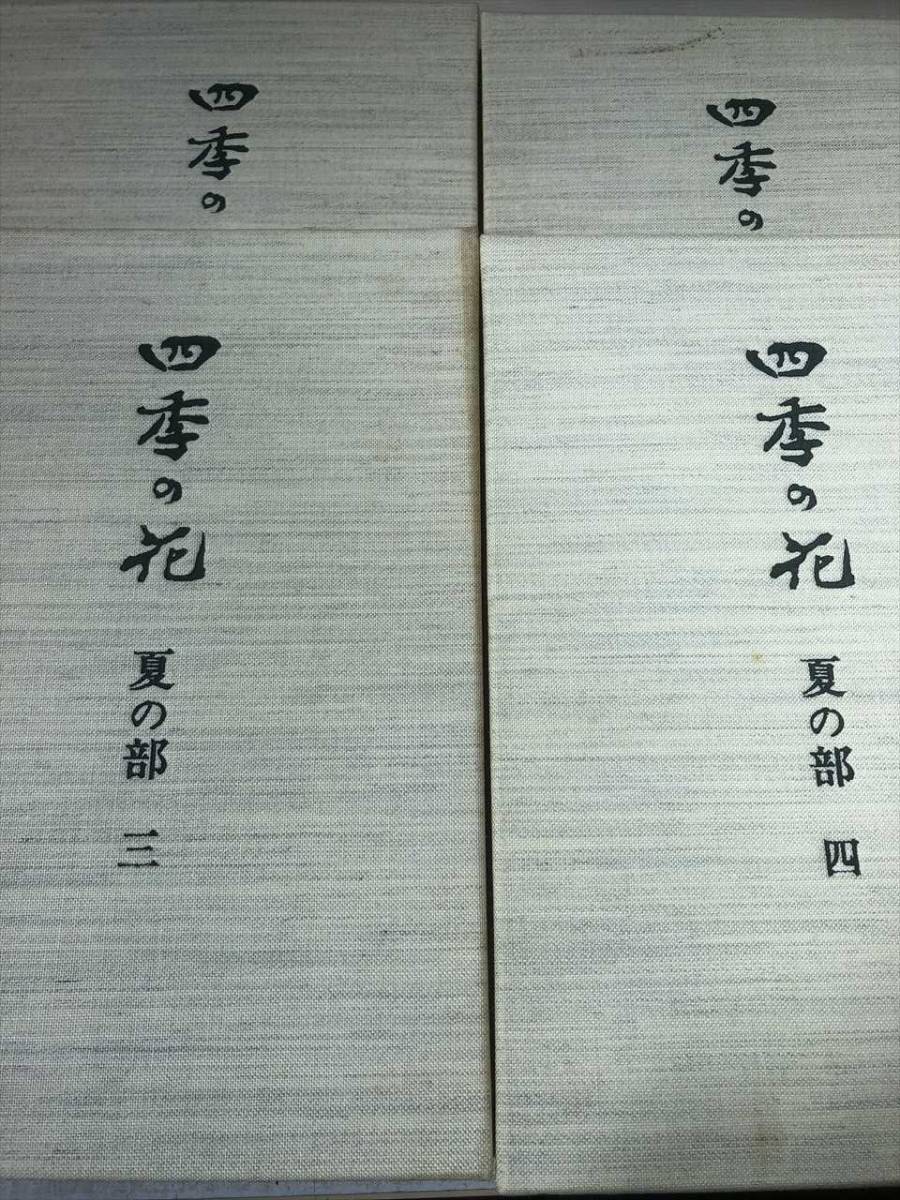 四季の
四季の
四季の花
夏の部 三
四季の花
夏の部 四